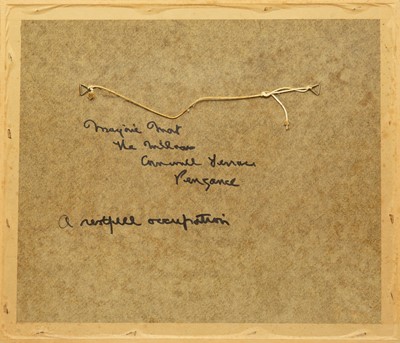 Marjorie Mort
The
Cornwall Terrace
Penzance
A restfull occupation